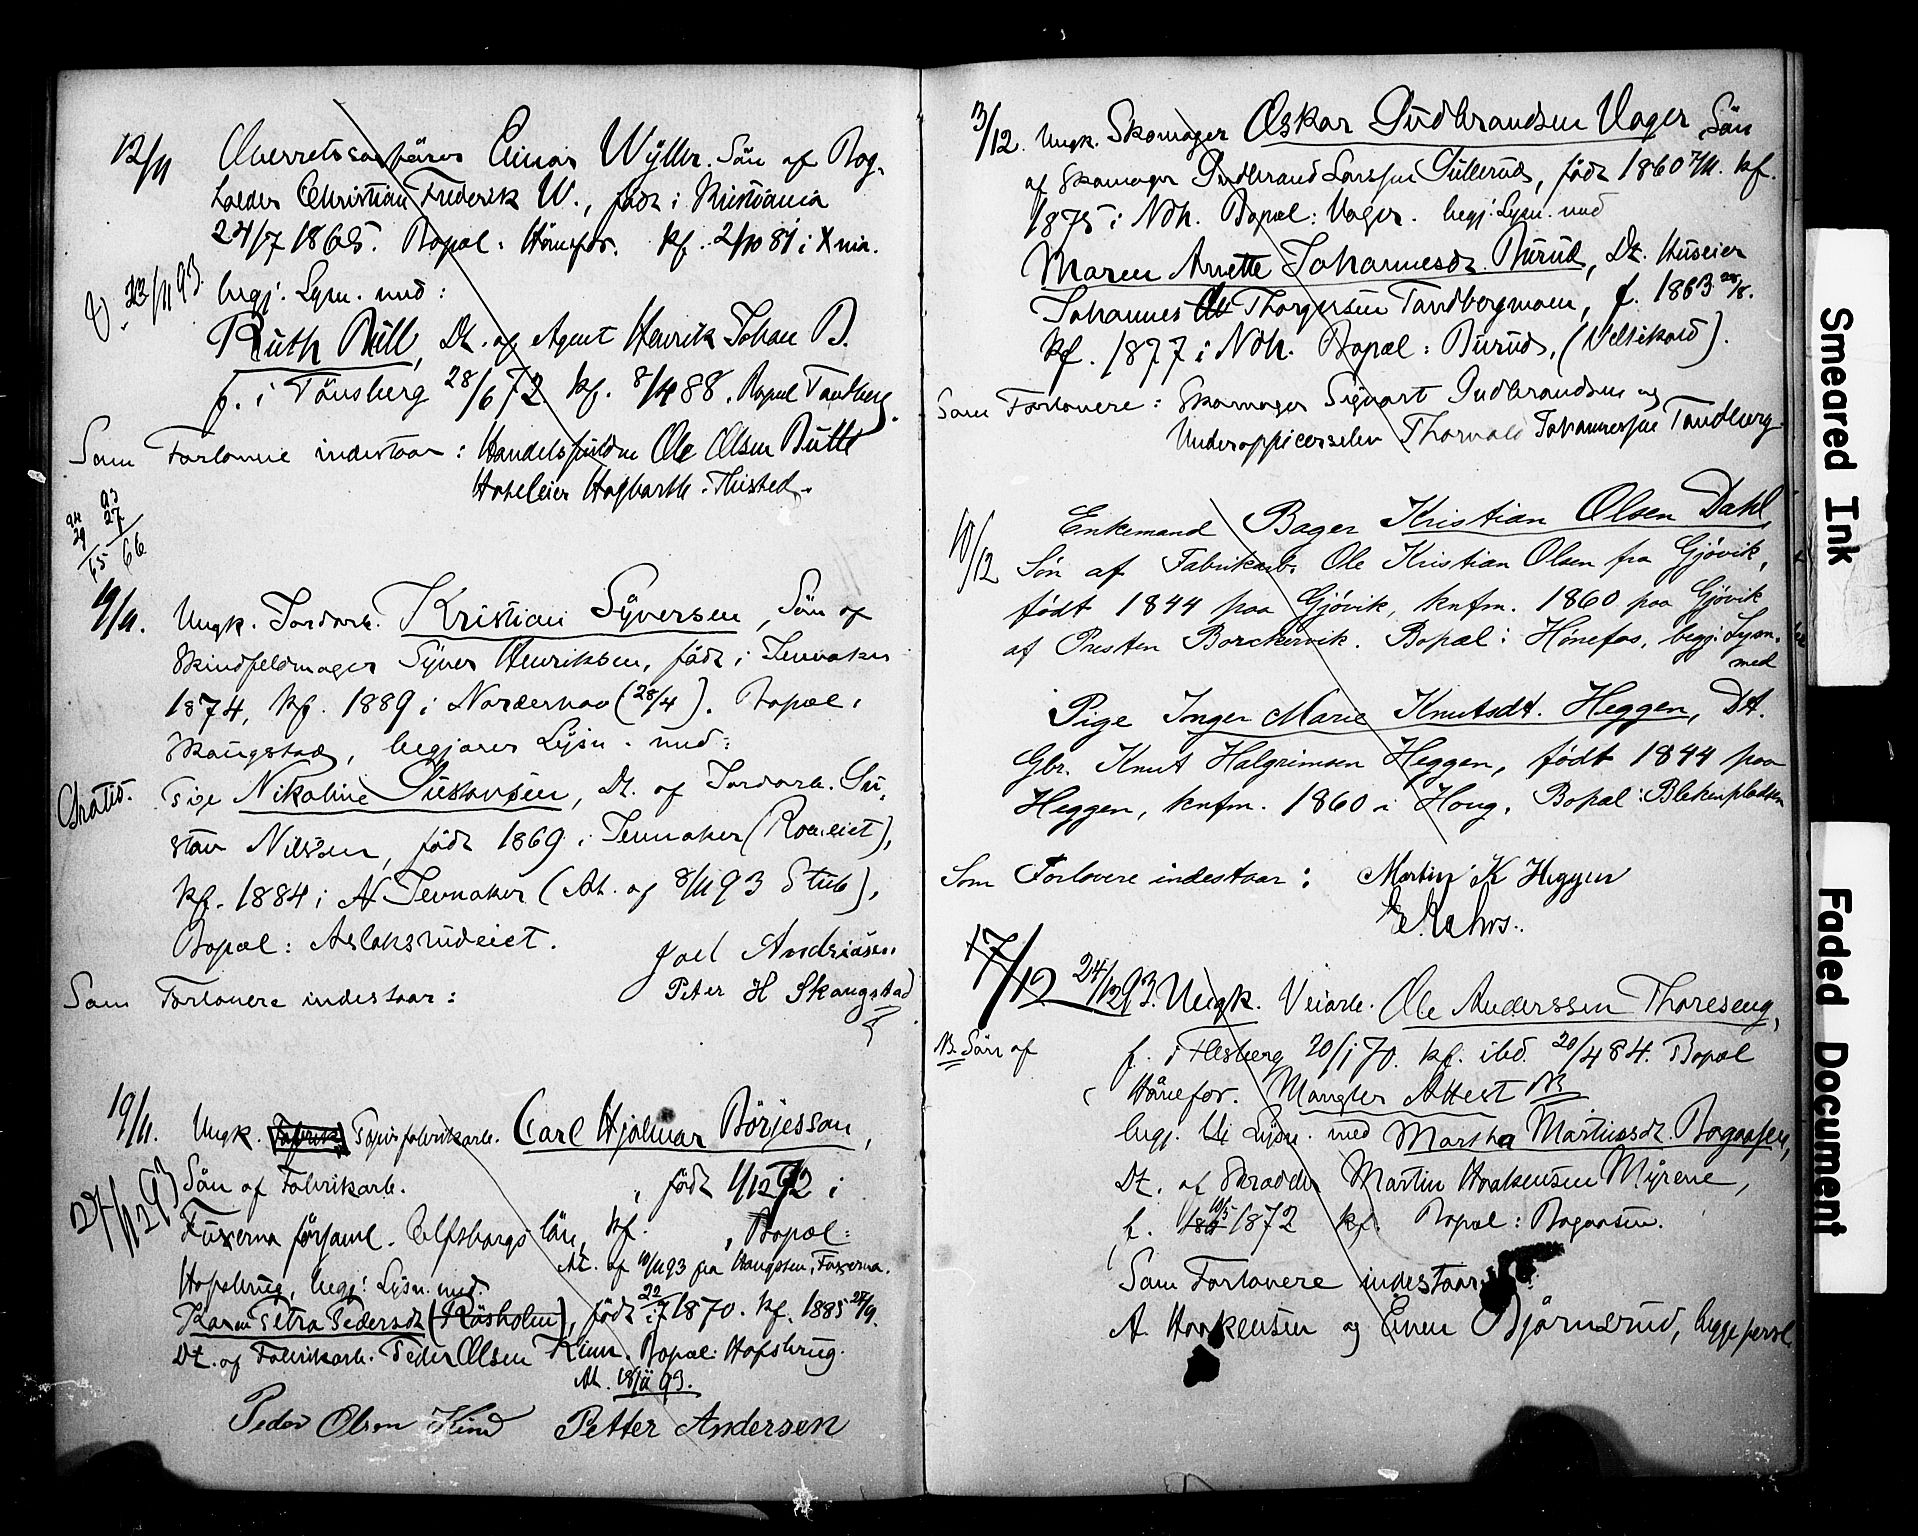 12/11 Overretssagfører Einar Wyller. Søn af Bog-
holder Christian Frederik W., født i Kristiania
24/7 1865. Bopæl: Hønefos. kf. 2/10 81 i Xnia.
V. 23/11 93. begj. Lysn. med:
Ruth Bull, Dt. af Agent Henrik Johan B.
f. i Tønsberg 28/6 72 kf. 8/4 88. Bopæl Tandberg.
Som Forlovere indestaar: Handelsfuldm Ole Olsen Butli
Hoteleier Hagbarth Thisted.
94 93
29 27
65 66
9/11. Ungk. Jordarb. Kristian Syversen, Søn af
Skindfeldmager Syver Henriksen, født i Jevnaker
1874, kf. 1889 i Norderhov (28/4). Bopæl:
Skaugstad, begjærer Lysn. med:
Gratis. Pige Nikoline Gustavsen, Dt. af Jordarb. Gu-
stav Nilsen, født 1869 i Jevnaker (Roa eiet),
kf. 1884 i N Jevnaker (At. af 8/11 93 Stub),
Bopæl: Aslaksrudeiet.
Joel Andriasen
Som Forlovere indestaar: Peter H Skaugstad
19/11. Ungk. Fabrik Papirfabrikarb. Carl Hjalmar Börjesson,
27/12 93 Søn af Fabrikarb. , født 1/12 72 i
Fuxerna församl. Elfsborgs län, kf. , Bopæl:
At. af 10/11 93 fra Haugsten, Fuxerna.
Hofsbrug, begj. Lysn. med.
Karen Petra Pedersdt (Råsholm), født 22/7 1870. kf. 1885 27/9.
Dt. af Fabrikarb. Peder Olsen Kinn. Bopæl: Hofsbrug.
At. 18/11 93.
Peder Olsen Kind Petter Andersen
3/12. Ungk. Skomager Oskar Gudbrandsen Vager Søn
af Skomager Gudbrand Larssen Gullerud, født 1860 7/11. kf.
1875 i Ndh. Bopæl: Vager. begj. Lysn. med
Maren Anette Johannesdt. Burud, Dt. Huseier
Johannes Thorgersen Tandbergmoen, f. 1863 28/8.
kf. 1877 i Ndh. Bopæl: Burud, (Velsikold).
Som Forlovere: Skomager Sigvart Gudbrandsen og
Underofficerselev Thorvald Johannessen Tandberg.
10/12 Enkemand Bager Kristian Olsen Dahl,
Søn af Fabrikarb. Ole Kristian Olsen fra Gjøvik,
født 1844 paa Gjøvik, knfm. 1860 paa Gjøvik
af Presten Borchervik. Bopæl: Hønefos, begj: Lysn.
med
Pige Inger Marie Knutsdt. Heggen, Dt.
Gbr. Knut Halgrimsen Heggen, født 1844 paa
Heggen, knfm. 1860 i Houg, Bopæl: Blekenpladsen
Som Forlovere indestaar: Martin K Heggen
17/12 24/12 93. Ungk. Veiarb. Ole Anderssen Thoreseng,
NB. Søn af f. i Flesberg 20/1 70. kf. ibd. 20/4 84. Bopæl
Hønefos. Mangler Attest NB
begj. Lysn. med Martha Martinsdt. Bogaasen,
Dt. af Skrædder Martin Haakensen Myrene,
f. 10/5 1872 kf. Bopæl: Bogaasen.
Som Forlovere indestaar:
A Haakensen og Even Bjørnerud, begge perse
Smeared Ink
Faded Document